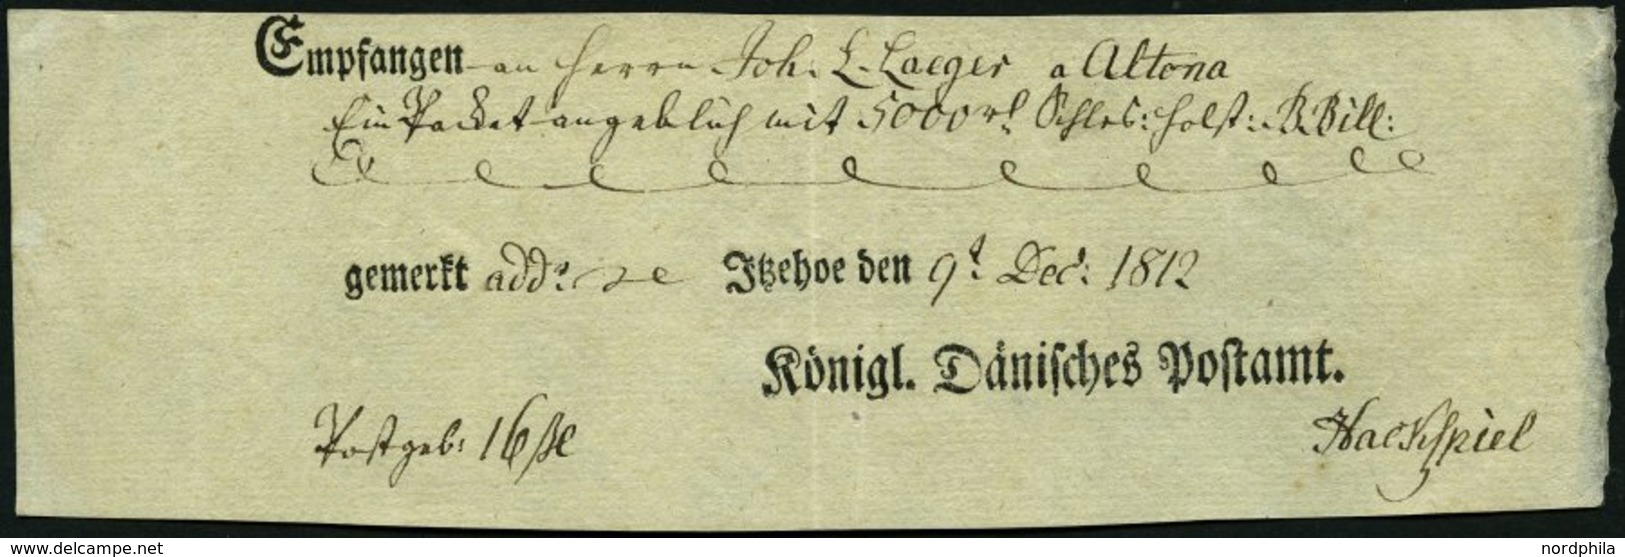 Empfangen an Herrn Joh. L. Laeger a Altona
Ein Packet angeblich mit 5000 rl Schles: Holst: B. Bill:
gemerkt addr. Itzehoe den 9t Dec: 1812
Königl. Däniſches Poſtamt.
Postgeb: 16 ße Hackspiel
www.delcampe.net nordphila